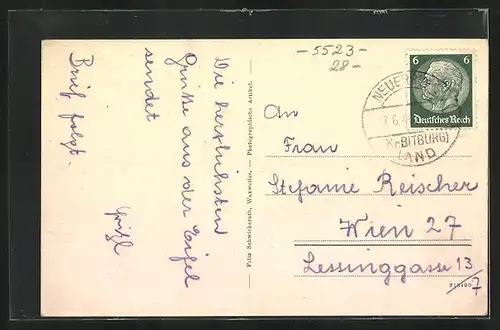 Die herzlichsten
Grüße aus der Eifel
sendet
Brief folgt.
Fritz Schwickerath, Waxweiler. — Photographische Anstalt.
—5523—
28—
6 6
Deutsches Reich
NEUER
7.6.4
KrBITBURG)
LAND
An
Frau
Stefanie Reischer
Wien 27
Lessinggasse 13/7